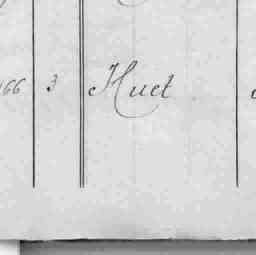 166 3 Huet